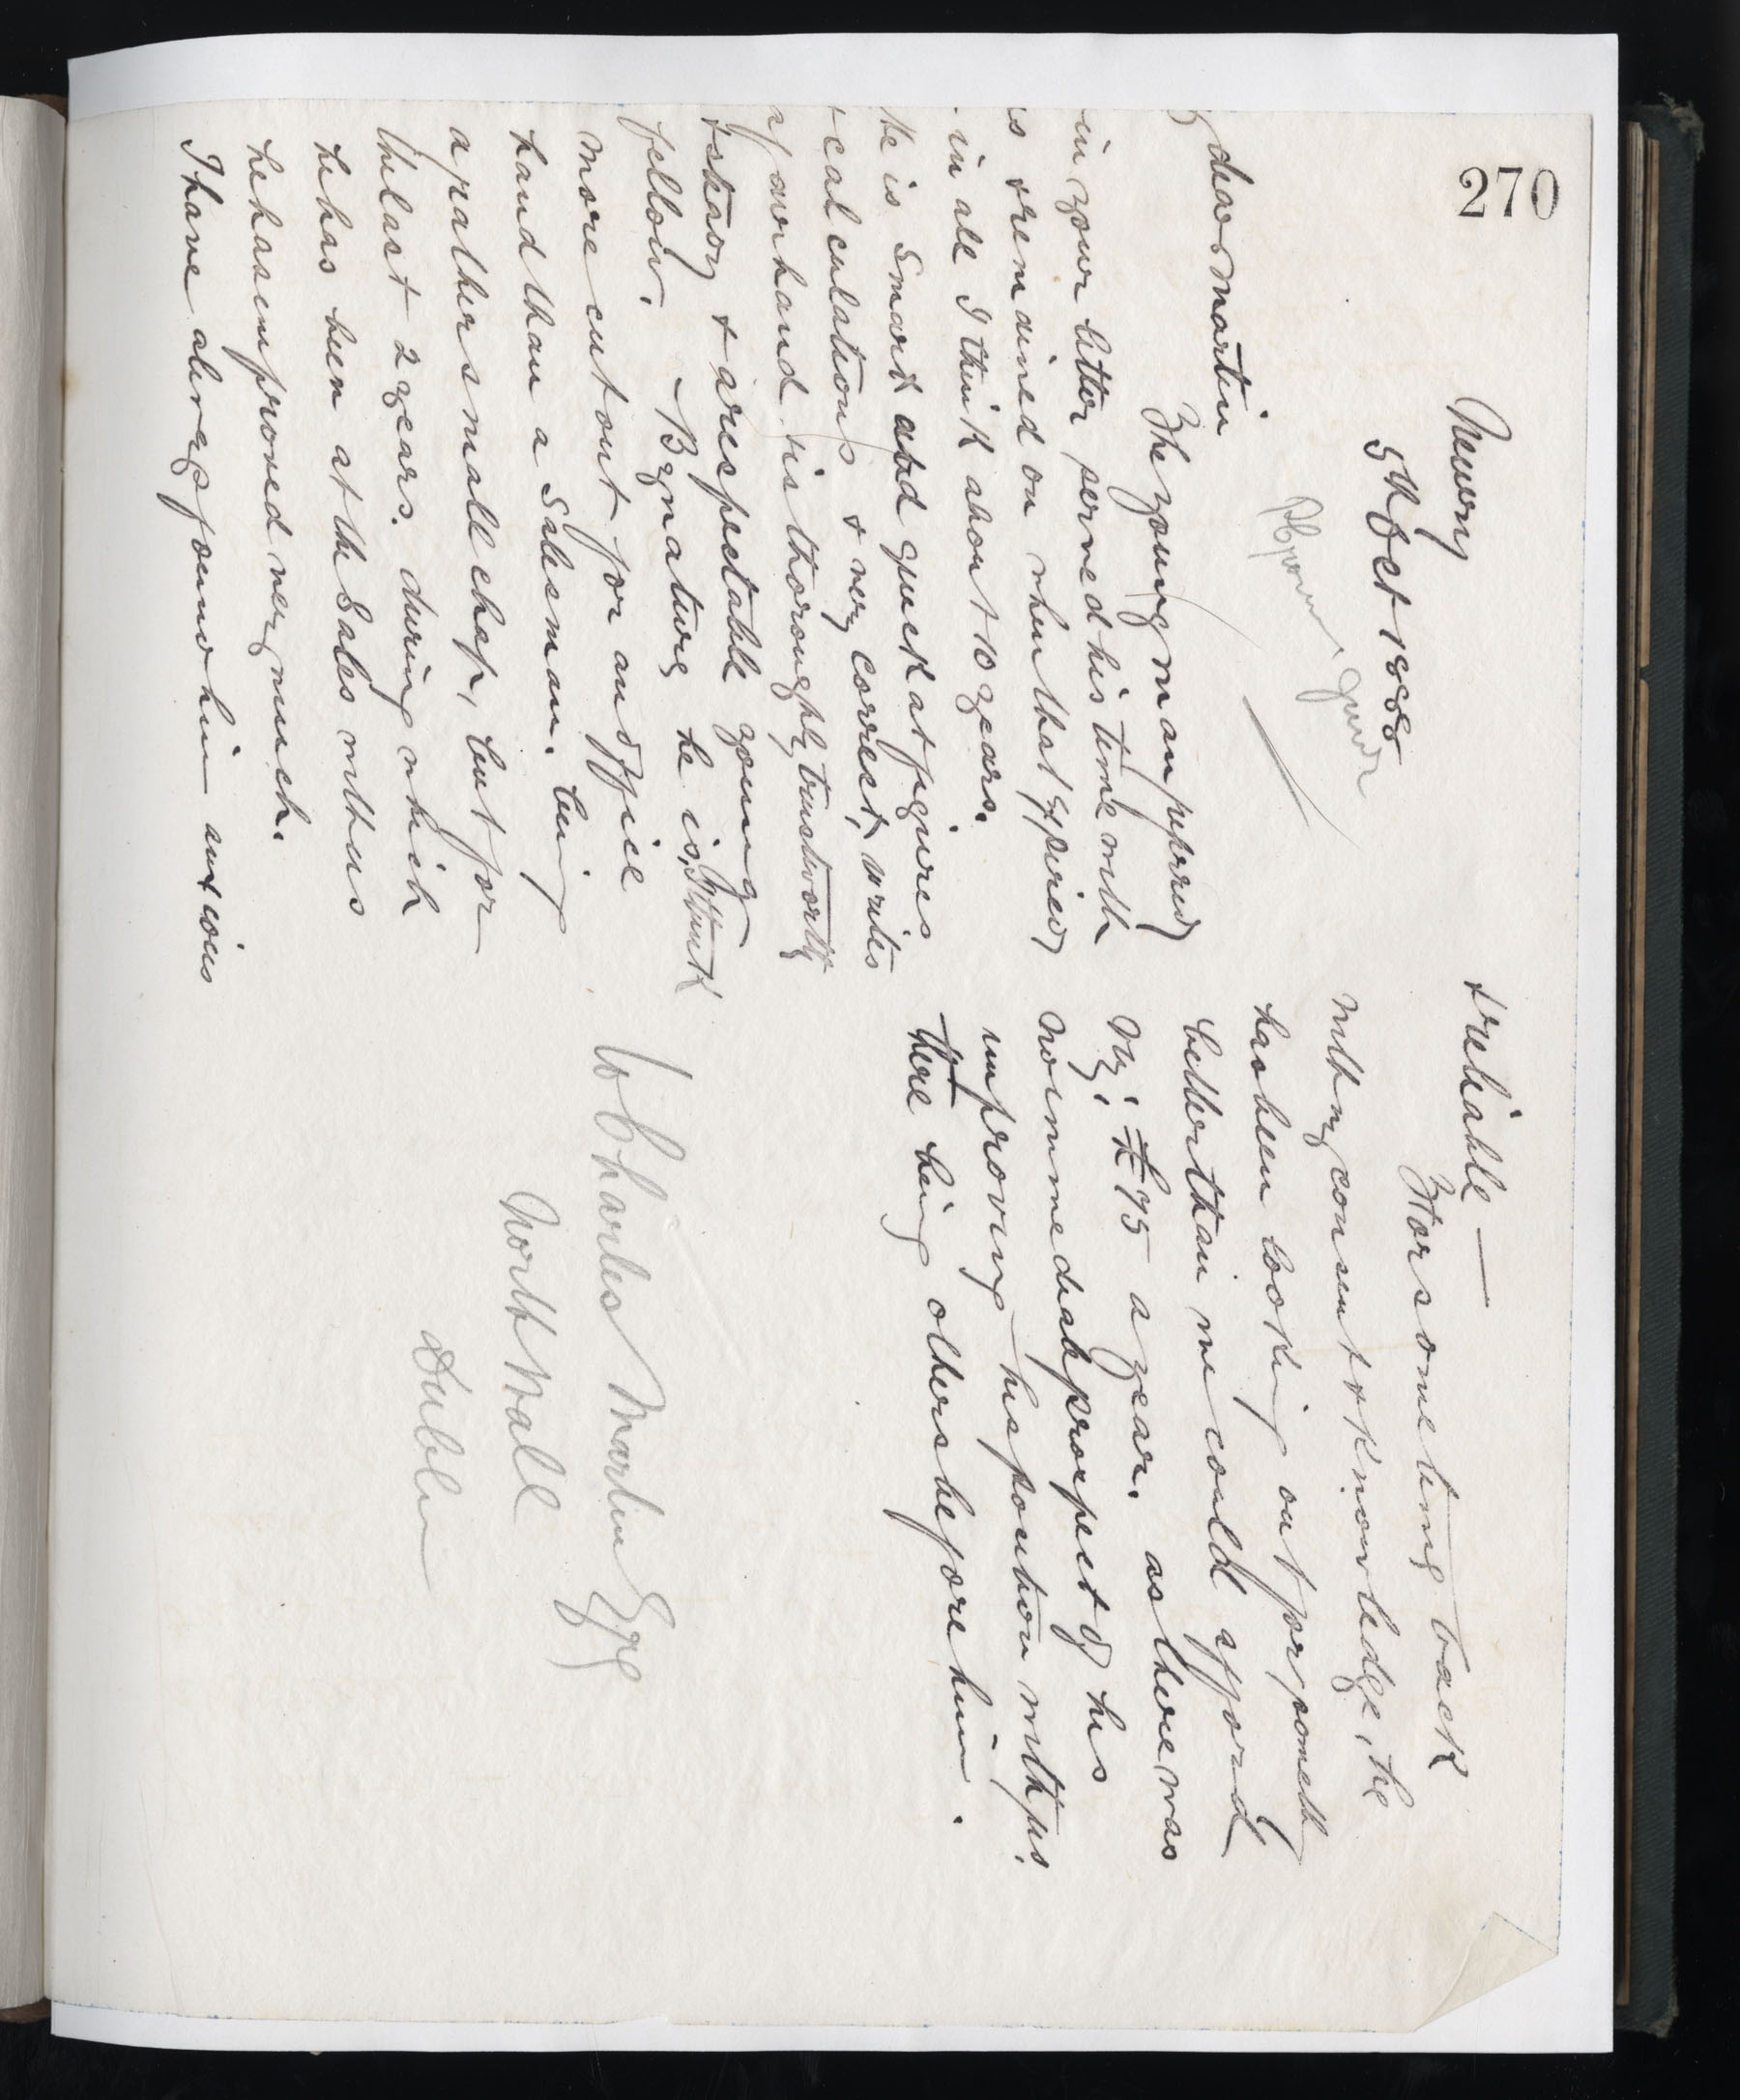 270
Newry
5th Oct 1888
dear Martin
The young man referred
in your letter served his time with
us & remained on when that expired
in all I think about 10 years.
He is smart and quick at figures
& calculations & very correct, writes
a fair hand, is thoroughly trustworthy
& steady & a respectable young
fellow. By nature he is, I think
more cut out for an office
hand than a salesman. being
a rather small chap, but for
the last 2 years. during which
he has been at the Sales with us
he has improved very much.
I have always found him anxious
& reliable —
For some time back
with my consent & knowledge, he
has been looking out for someth
better than we could afford
viz; £75 a year. as there was
no immediate prospect of his
improving his position with us.
there being others before him.
Charles Martin Esqre
North Wall
Dublin